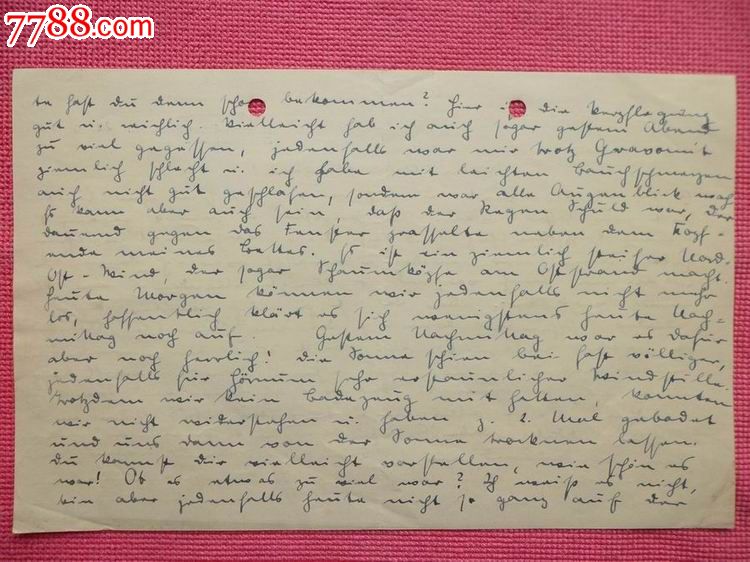 7788.com
te hast du denn schon bekommen? Hier ist die Verpflegung
gut u. reichlich. Vielleicht hab ich auch sogar gestern Abend
zu viel gegessen, jedenfalls war mir trotz Gravomit
ziemlich schlecht u. ich habe mit leichten Bauchschmerzen
auch nicht gut geschlafen, sondern war alle Augenblick wach
Es kann aber auch sein, daß der Regen Schuld war, der
dauernd gegen das Fenster prasselte neben dem Kopf-
ende meines Bettes. Es ist ein ziemlich steifer Nord-
Ost-Wind, der sogar Schaumköpfe am Oststrand macht.
Heute Morgen können wir jedenfalls nicht mehr
los, hoffentlich klärt es sich wenigstens heute Nach-
mittag noch auf. Gestern Nachmittag war es dafür
aber noch herrlich! Die Sonne schien bei fast völliger,
jedenfalls für Hörnum sehr erstaunlicher Windstille.
Trotzdem wir kein Badezeug mit hatten, konnten
wir nicht widerstehen u. haben z. 2. Mal gebadet
und uns dann von der Sonne trocknen lassen.
Du kannst dir vielleicht vorstellen, wie schön es
war! Ob es etwas zu viel war? Ich weiß es nicht,
bin aber jedenfalls heute nicht so ganz auf der